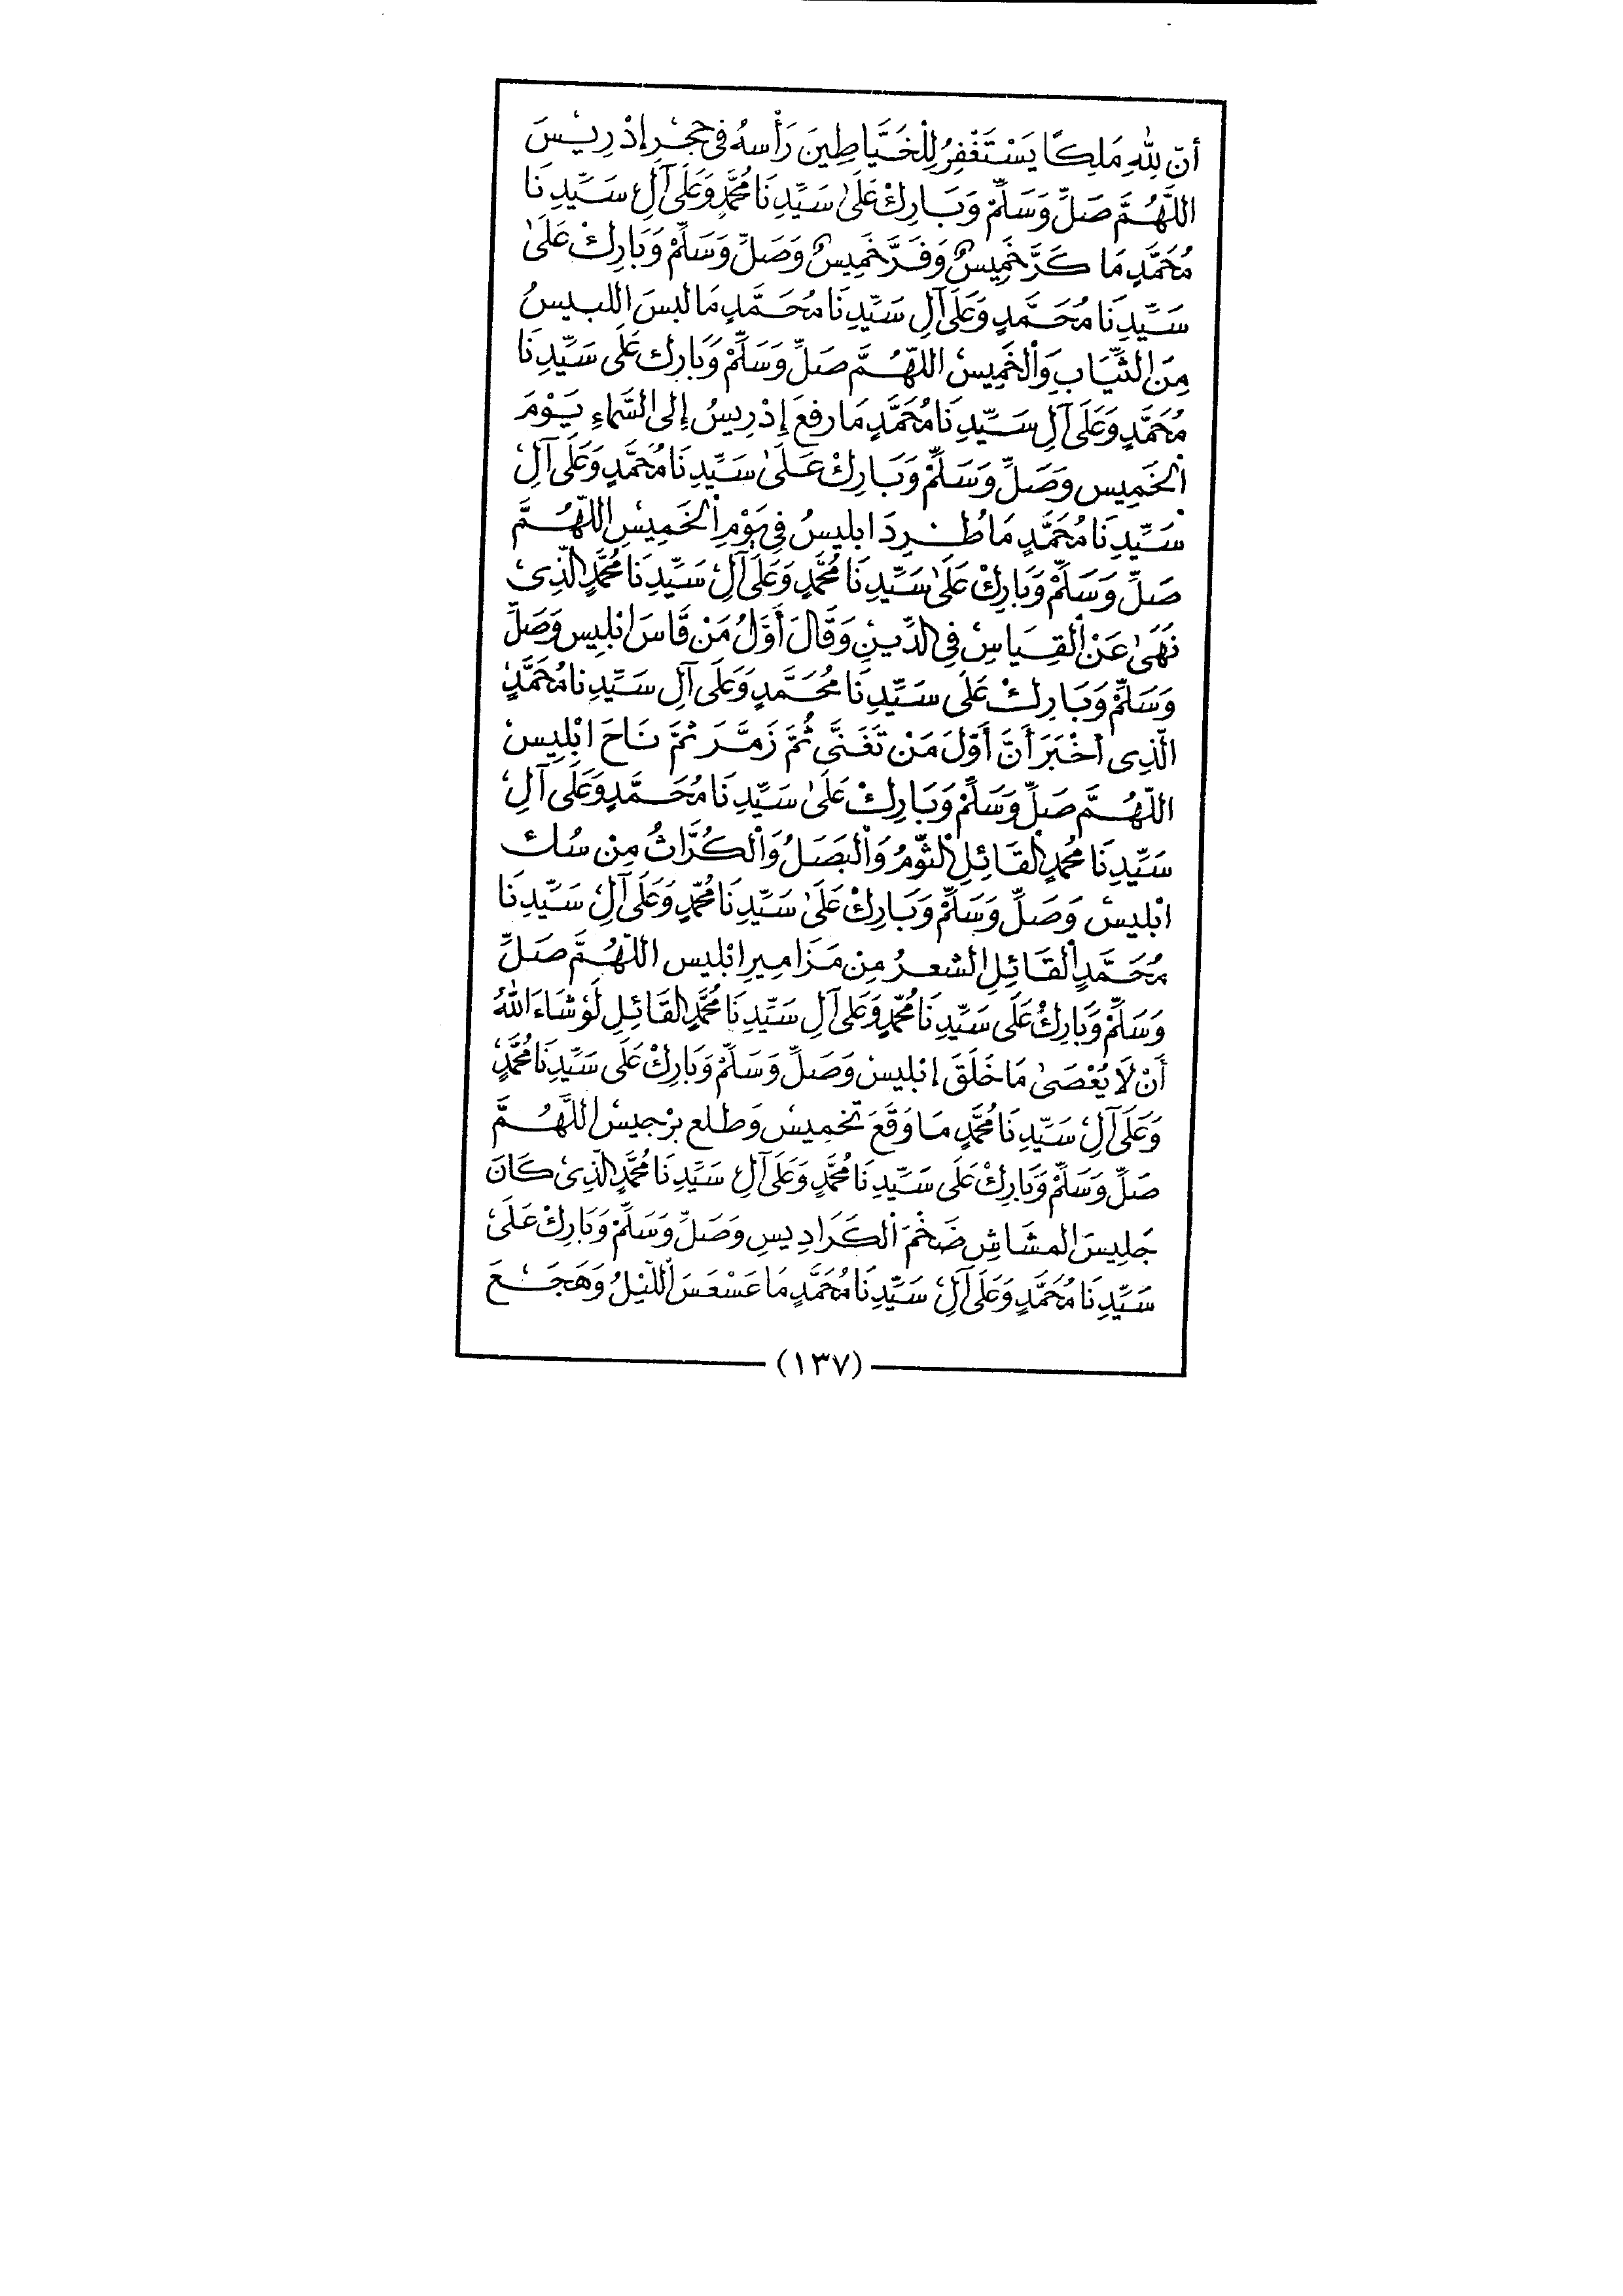 أنّ لِلّٰهِ مَلِكًا يَسْتَغْفِرُ لِلْخَيَّاطِينَ رَأْسهُ فى حِجْرِ إدْرِيسَ
اللَّهُمَّ صَلِّ وَسَلِّمْ وَبَارِكْ عَلَىٰ سَيِّدِنَا مُحَمَّدٍ وَعَلَى آلِ سَيِّدِنَا
مُحَمَّدٍ مَا كَرَّ خَمِيسٌ وَفَرَّ خَمِيسٌ وَصَلِّ وَسَلِّمْ وَبَارِكْ عَلَىٰ
سَيِّدِنَا مُحَمَّدٍ وَعَلَى آلِ سَيِّدِنَا مُحَمَّدٍ مَا لبسَ اللبيسُ
مِنَ الثِّيَابِ وَالْخَمِيسْ اللّهُمَّ صَلِّ وَسَلِّمْ وَبَارِك عَلَى سَيِّدِنَا
مُحَمَّدٍ وَعَلَى آلِ سَيِّدِنَا مُحَمَّدٍ مَا رفعَ إِدْرِيسُ إلى السَّمَاءِ يَوْمَ
الْخَمِيس وَصَلِّ وَسَلِّمْ وَبَارِكْ عَلَىٰ سَيِّدِنَا مُحَمَّدٍ وَعَلَى آلِ
سَيِّدِنَا مُحَمَّدٍ مَا طُرِدَ ابليسُ فِى يَوْمِ الْخَمِيسْ اللّهُمَّ
صَلِّ وَسَلِّمْ وَبَارِكْ عَلَىٰ سَيِّدِنَا مُحَمَّدٍ وَعَلَى آلِ سَيِّدِنَا مُحَمَّدٍ الَّذِى
نَهَىٰ عَنْ الْقِيَاسِ فِى الدِّينِ وَقَالَ أَوَّلُ مَنْ قَاسَ ابْلِيس وَصَلِّ
وَسَلِّمْ وَبَارِكْ عَلَى سَيِّدِنَا مُحَمَّدٍ وَعَلَى آلِ سَيِّدِنا مُحَمَّدٍ
الّذِى أخْبَرَ أَنَّ أَوّلَ مَنْ تَغَنَّى ثُمَّ زَمَّرَ ثمَّ نَاحَ ابْلِيسْ
اللّهُمَّ صَلِّ وَسَلِّمْ وَبَارِكْ عَلَىٰ سَيِّدِنَا مُحَمَّدٍ وَعَلَى آلِ
سَيِّدِنَا مُحمدٍ الْقَائِلِ الْثّومُ وَالْبَصَلُ وَالْكُرَّاثُ مِنْ سُك
ابْليسْ وَصَلِّ وَسَلِّمْ وَبَارِكْ عَلَىٰ سَيِّدِنَا مُحَمّدٍ وَعَلَى آلِ سَيِّدِنَا
مُحَمَّدٍ الْقَائِلِ الشعرُ مِن مَزَامِيرِ ابْليس اللّهُمَّ صَلِّ
وَسَلِّمْ وَبَارِكْ عَلَى سَيِّدِنَا مُحَمّدٍ وَعَلى آلِ سَيِّدِنَا مُحَمَّدٍ القَائِلِ لَوْ شَاءَ اللّٰهُ
أَنْ لَا يُعْصَىٰ مَا خَلَقَ إبْليسْ وَصَلِّ وَسَلِّمْ وَبَارِكْ عَلَى سَيِّدِنَا مُحَمَّدٍ
وَعَلَى آلِ سَيِّدِنَا مُحَمَّدٍ مَا وَقَعَ تخمِيسْ وَطلع بِرْجيسْ اللَّهُمَّ
صَلِّ وَسَلِّمْ وَبَارِكْ عَلَى سَيِّدِنَا مُحَمَّدٍ وَعَلَى آلِ سَيِّدِنَا مُحَمَّدٍ الَّذِى كَانَ
جَلِيسَ المشَاشِ ضَخْمَ الْكَرَادِيسِ وَصَلِّ وَسَلِّمْ وَبَارِكْ عَلَى
سَيِّدِنَا مُحَمَّدٍ وَعَلَى آلِ سَيِّدِنَا مُحَمَّدٍ مَا عَسْعَسَ اللّيْلُ وَهَجَعَ
(١٣٧)